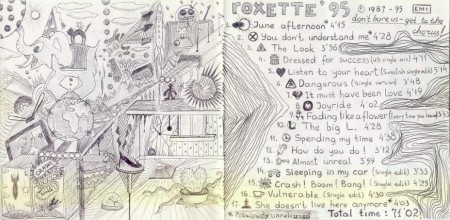 ROXETTE '95 ℗ 1987-95 EMI
don't bore us-get to the
chorus!
1. June afternoon* 4'15
2. You don't understand me* 4'28
3. The Look 3'56
4. Dressed for success (US single mix) 4'11
5. Listen to your heart (Swedish single edit) 5'14
6. Dangerous (Single version) 3'48
7. It must have been love 4'19
8. Joyride 4'02
9. Fading like a flower (Every time you leave)
10. The big L. 4'28
11. Spending my time 4'38
12. How do you do! 3'12
13. Almost unreal 3'59
14. Sleeping in my car (Single edit) 3'33
15. Crash! Boom! Bang! (Single edit) 4'25
16. Vulnerable (Single edit) 4'30
17. She doesn't live here anymore* 4'03
* Previously unreleased Total time: 71'02